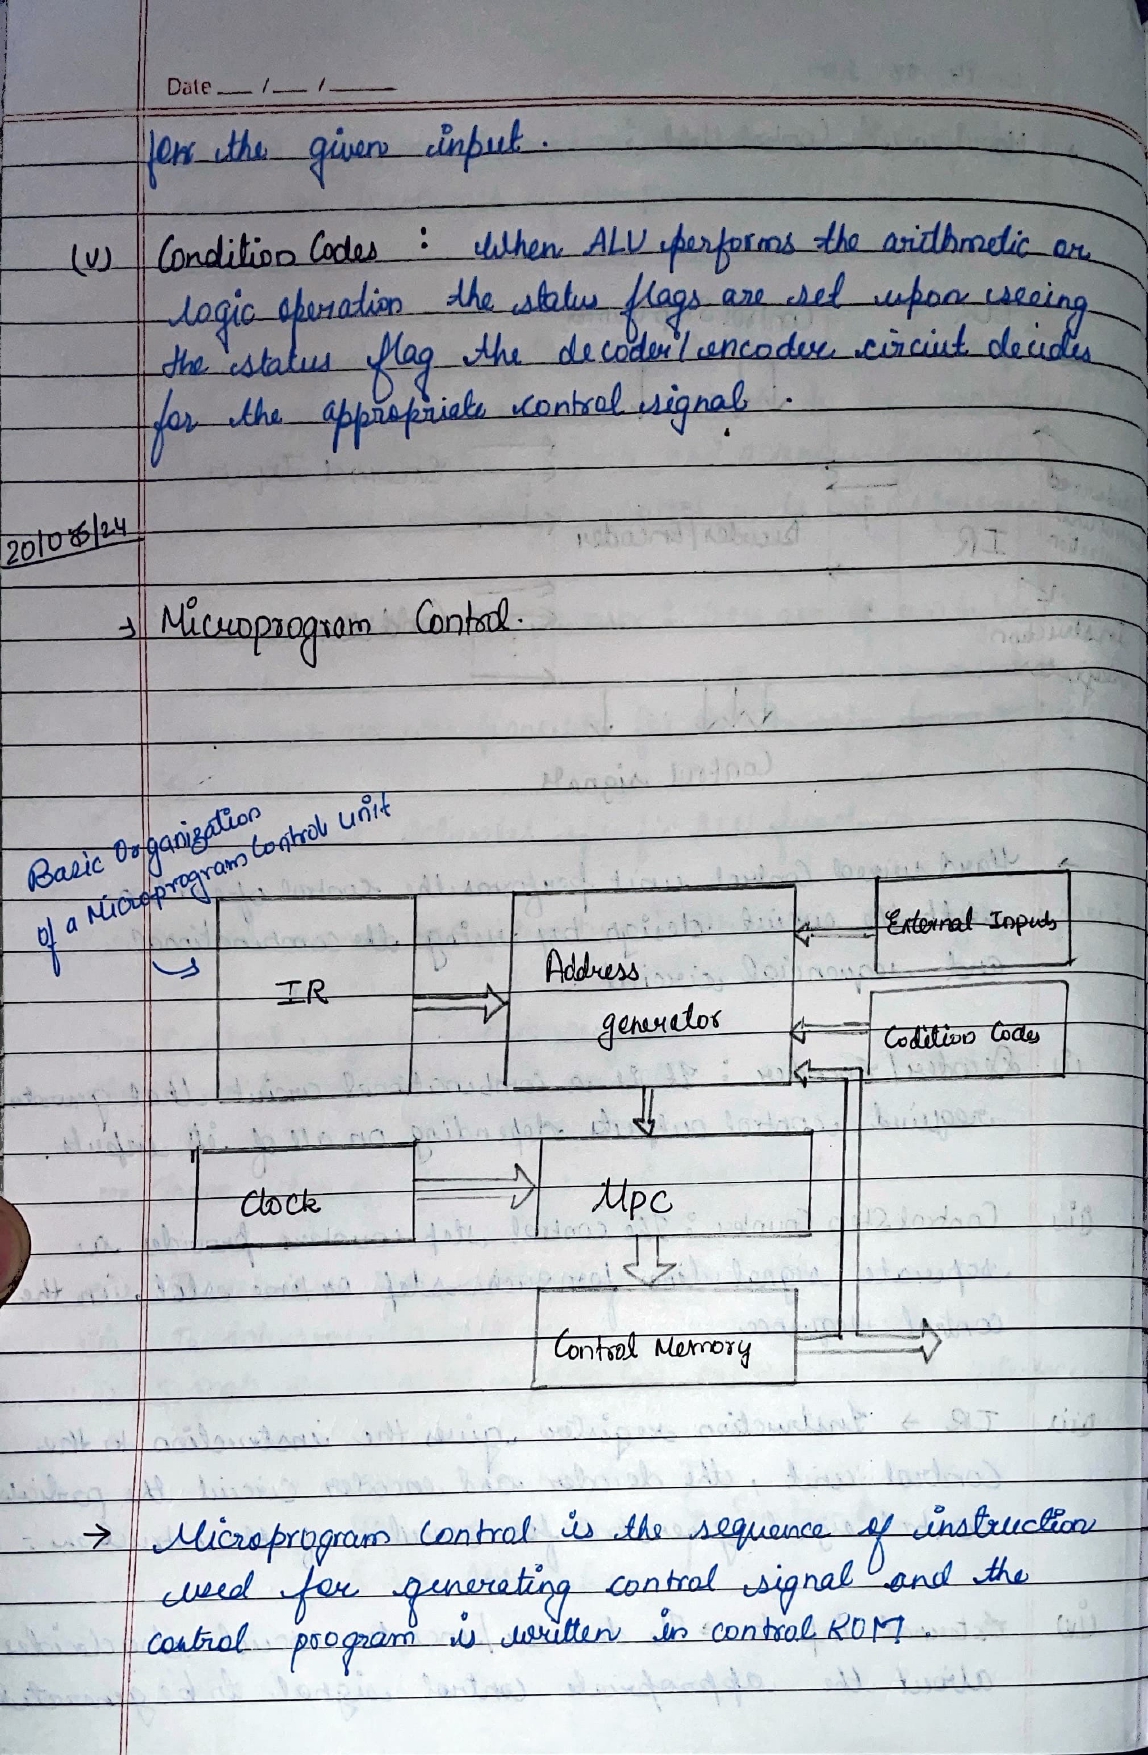 Date __/__/____
for the given input.
(v) Condition Codes : When ALU performs the arithmetic or
logic operation the status flags are set upon seeing
the status flag the decoder/encoder circiut decides
for the appropriate control signal.
20/08/24
→ Microprogram Control.
Basic Organization
of a Microprogram Control unit
IR
Address
generator
External Inputs
Codition Codes
Clock
MPC
Control Memory
→ Microprogram Control is the sequence of instruction
used for generating control signal and the
control program is written in control ROM.